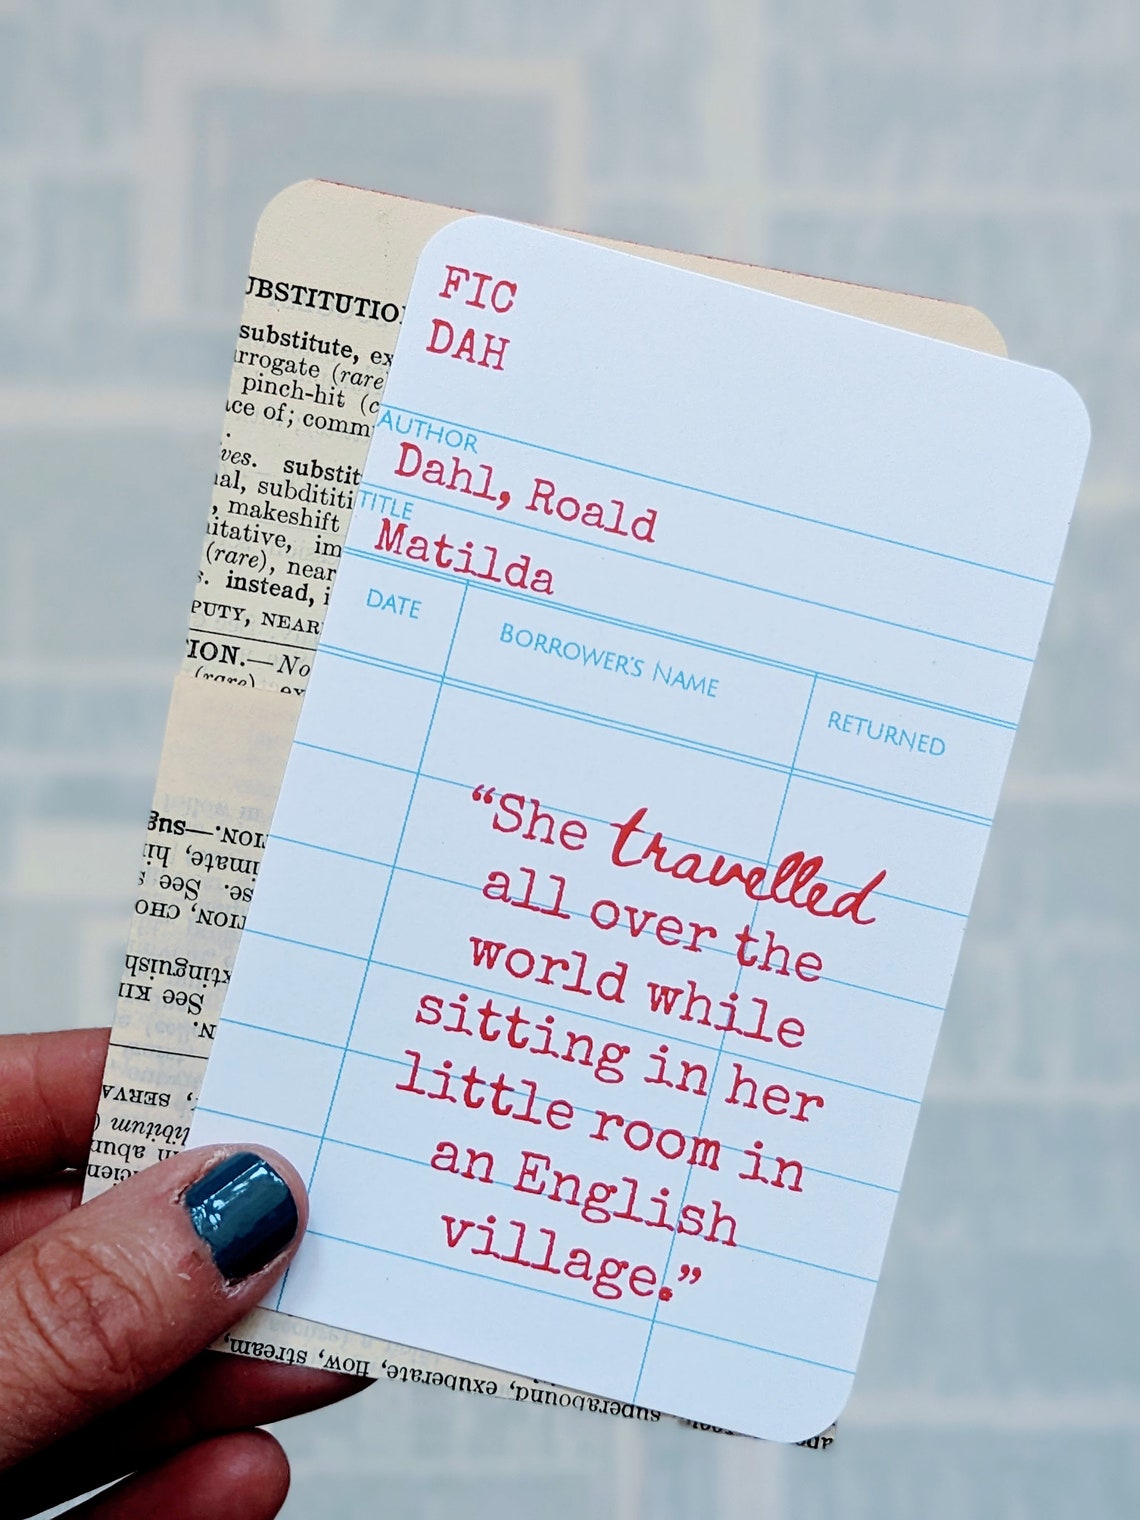 FIC
DAH
AUTHOR
Dahl, Roald
TITLE
Matilda
DATE BORROWER'S NAME RETURNED
“She travelled
all over the
world while
sitting in her
little room in
an English
village.”
substitute,
(rare
pinch-hit
of; comm
substit
makeshift
(rare), near
instead,
NEAR
—No
(rare)
See
See
SERVA
libitum
superabound, exuberate, flow, stream,